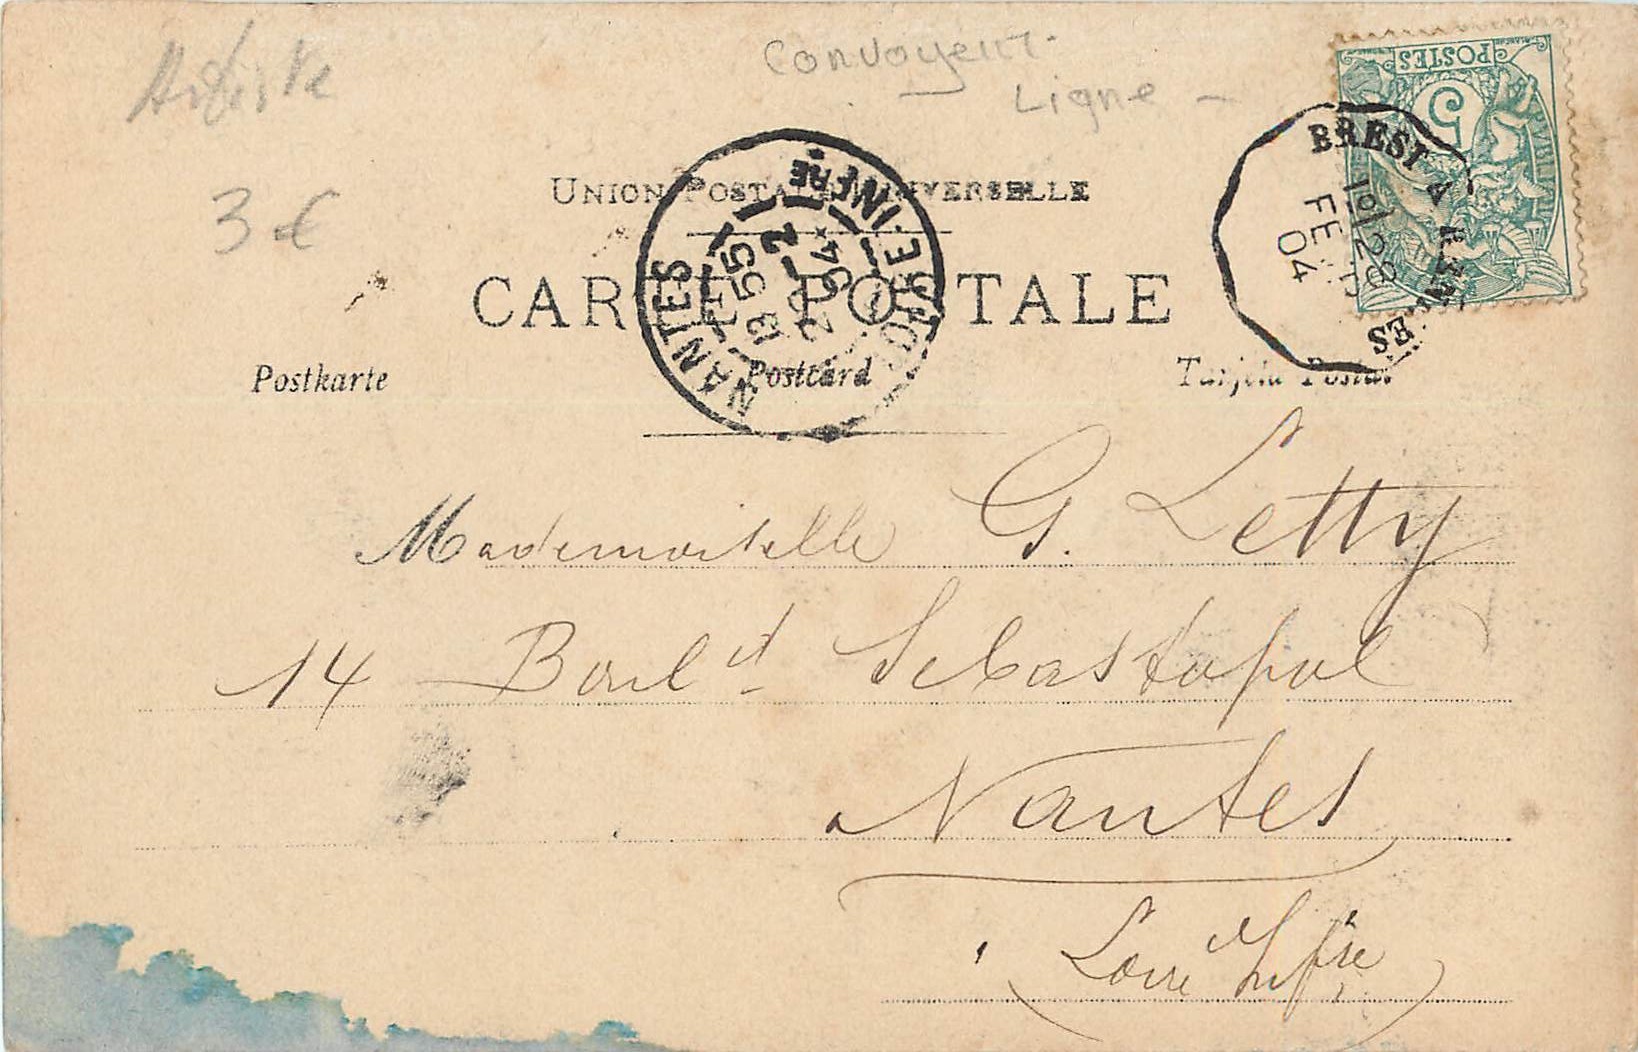 Artiste
Convoyeur
Ligne -
3 €
POSTES
5
BREST A RENNES
19 FEVR
04
UNION POSTALE UNIVERSELLE
CARTE POSTALE
Postkarte Postcard Tarjeta Postal
NANTES LOIRE-INFRE
13 55
20 - 2
04
Mademoiselle G. Letty
14 Boul d Sebastopol
Nantes
Loire Infre